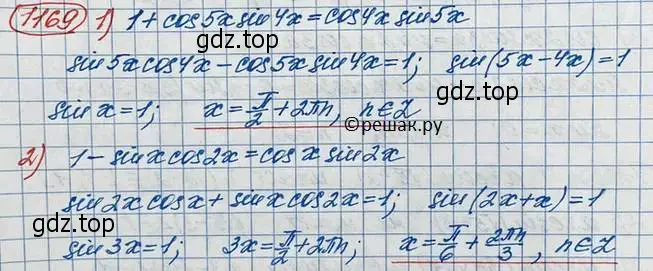 1169 1) 1 + cos5x sin4x = cos4x sin5x
gdz.top
sin5x cos4x - cos5x sin4x = 1; sin(5x - 4x) = 1
gdz.top
sin x = 1; x = π/2 + 2πn, n∈Z
©решак.ру
2) 1 - sin x cos2x = cos x sin2x
sin2x cos x + sin x cos2x = 1; sin(2x + x) = 1
gdz.top
gdz.top
sin3x = 1; 3x = π/2 + 2πn; x = π/6 + 2πn/3, n∈Z